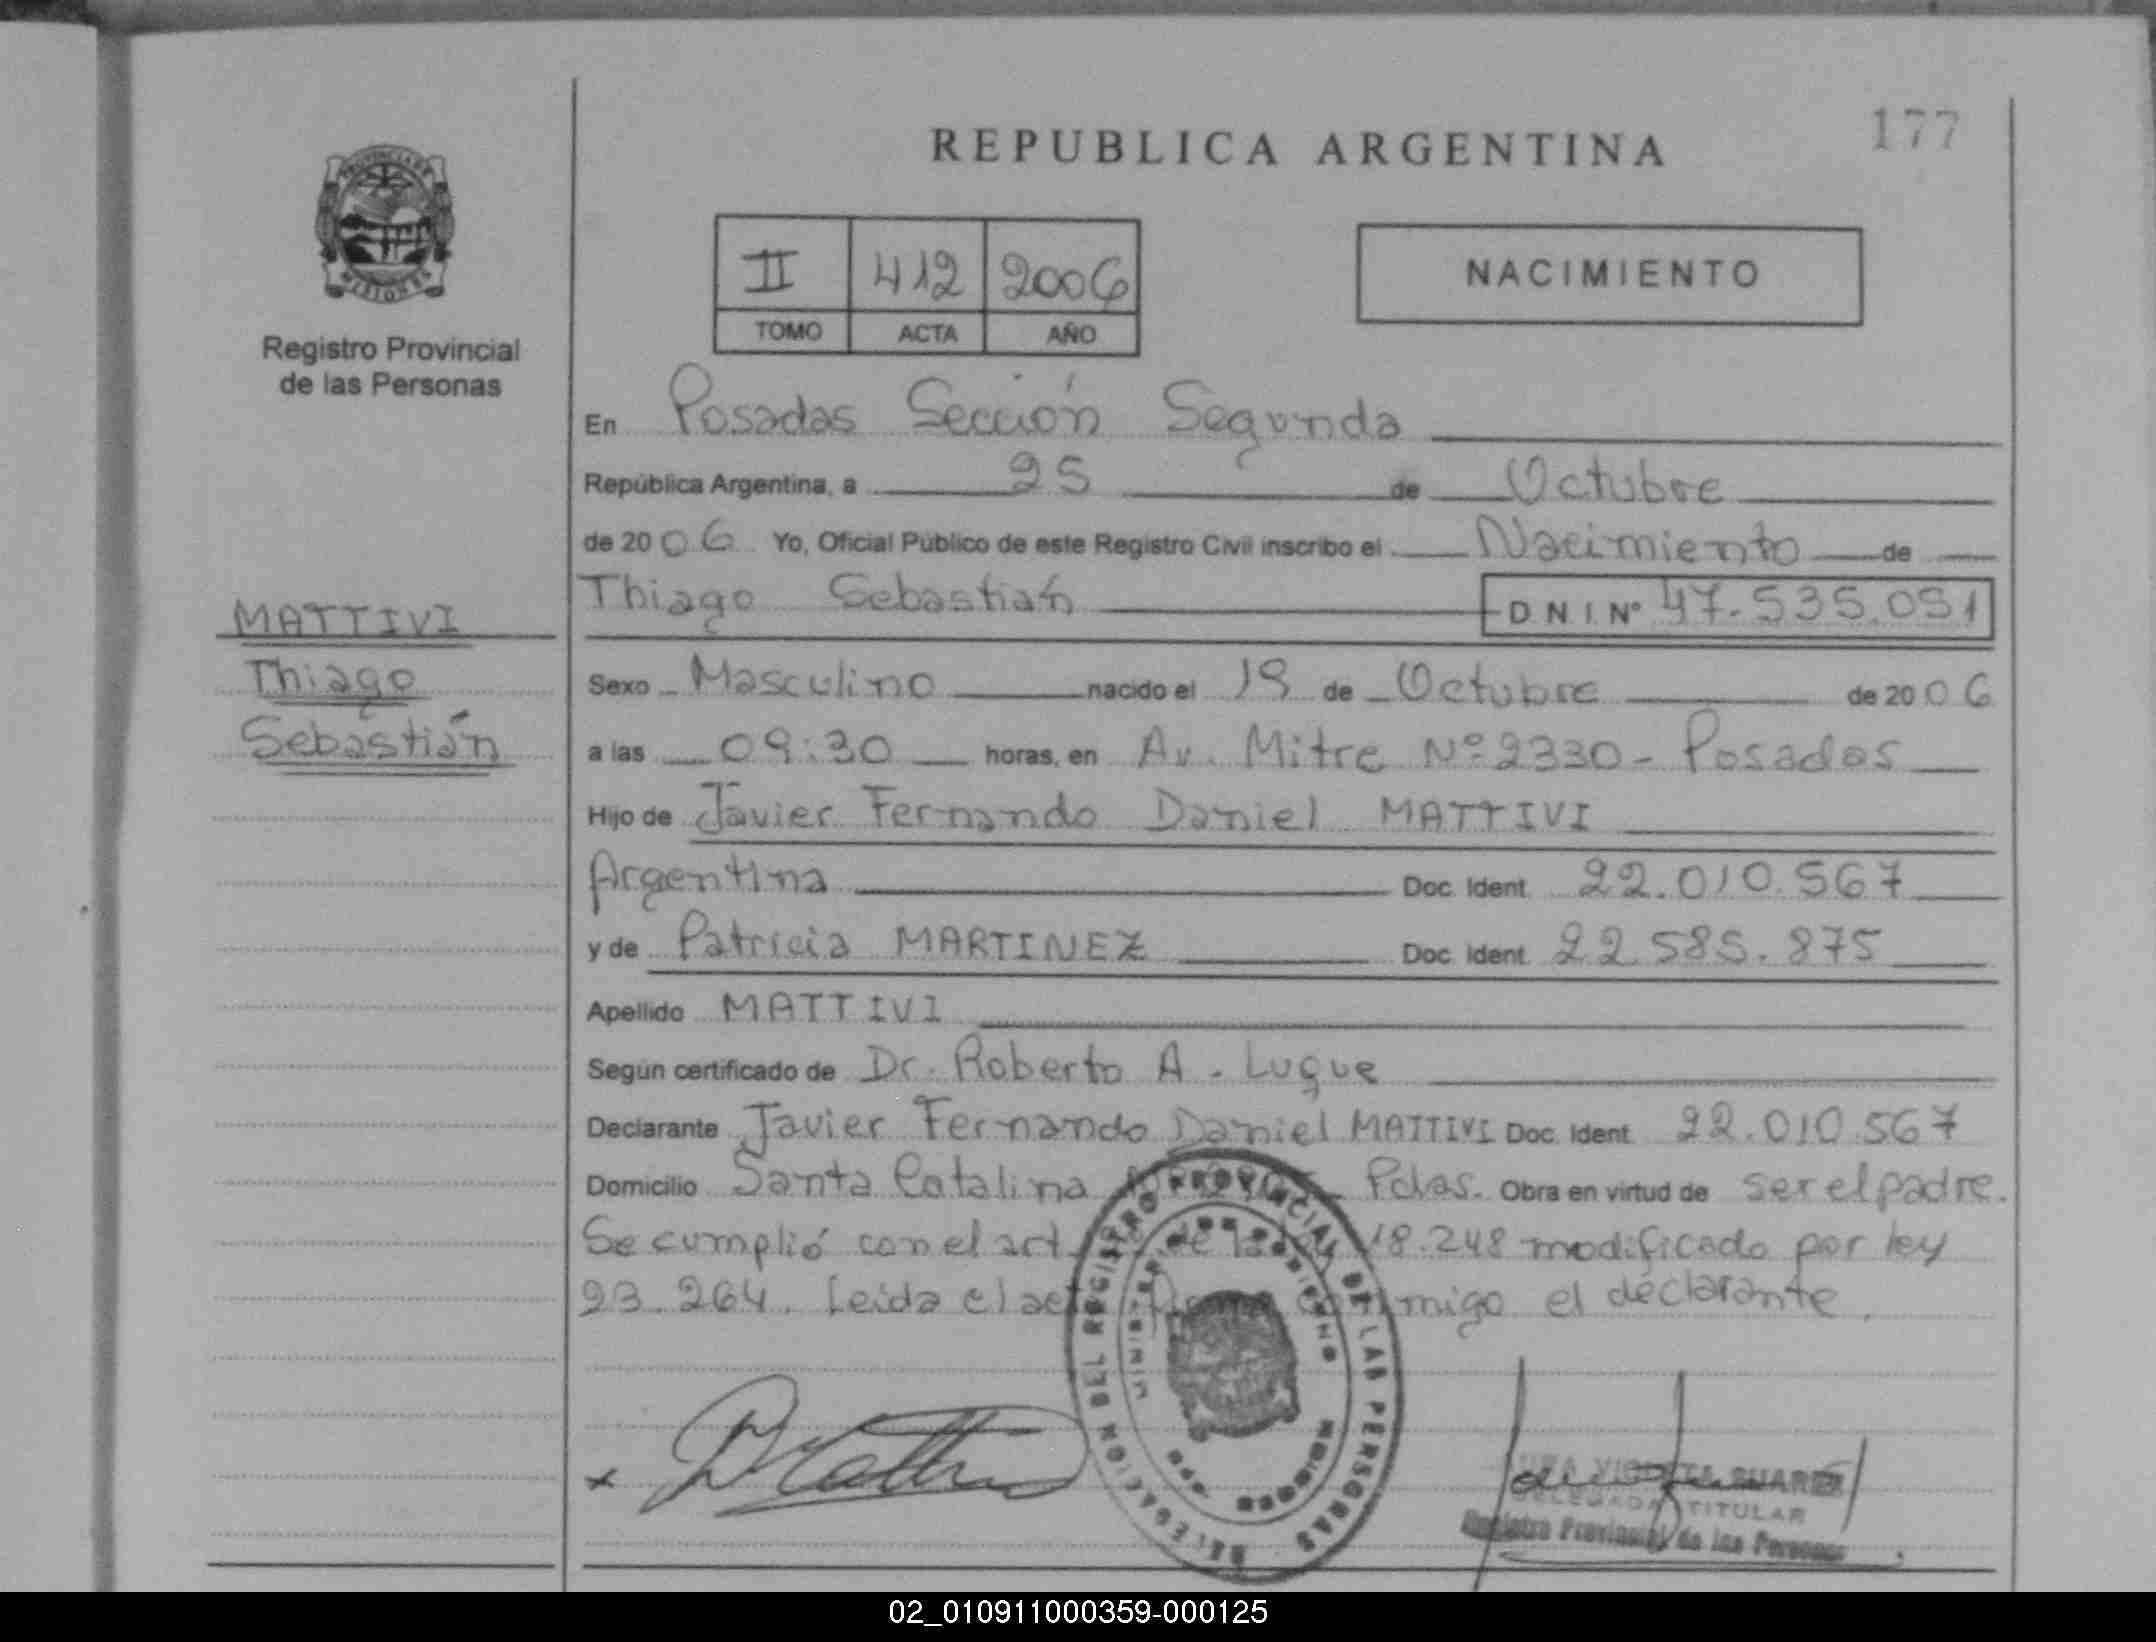 177
REPUBLICA ARGENTINA
PROVINCIA DE
MISIONES
Registro Provincial
de las Personas
II 412 2006
TOMO ACTA AÑO
NACIMIENTO
En Posadas Sección Segunda
República Argentina, a 25 de Octubre
de 2006 Yo, Oficial Público de este Registro Civil inscribo el Nacimiento de
Thiago Sebastián D.N.I. Nº 47.535.051
MATTIVI
Thiago
Sebastián
Sexo Masculino nacido el 19 de Octubre de 2006
a las 09:30 horas, en Av. Mitre Nº 2330 - Posadas
Hijo de Javier Fernando Daniel MATTIVI
Argentina Doc. Ident. 22.010.567
y de Patricia MARTINEZ Doc. Ident. 22.585.875
Apellido MATTIVI
Según certificado de Dr. Roberto A. Luque
Declarante Javier Fernando Daniel MATTIVI Doc. Ident. 22.010.567
Domicilio Santa Catalina Pdas. Obra en virtud de ser el padre.
Se cumplió con el art. de la 18.248 modificado por ley
23.264. Leida el acta firma conmigo el declarante.
DELEGACION DEL REGISTRO PROVINCIAL DE LAS PERSONAS
MINISTERIO DE GOBIERNO
MISIONES
x
VIOLETA SUAREZ
DELEGADA TITULAR
Registro Provincial de las Personas
02_010911000359-000125